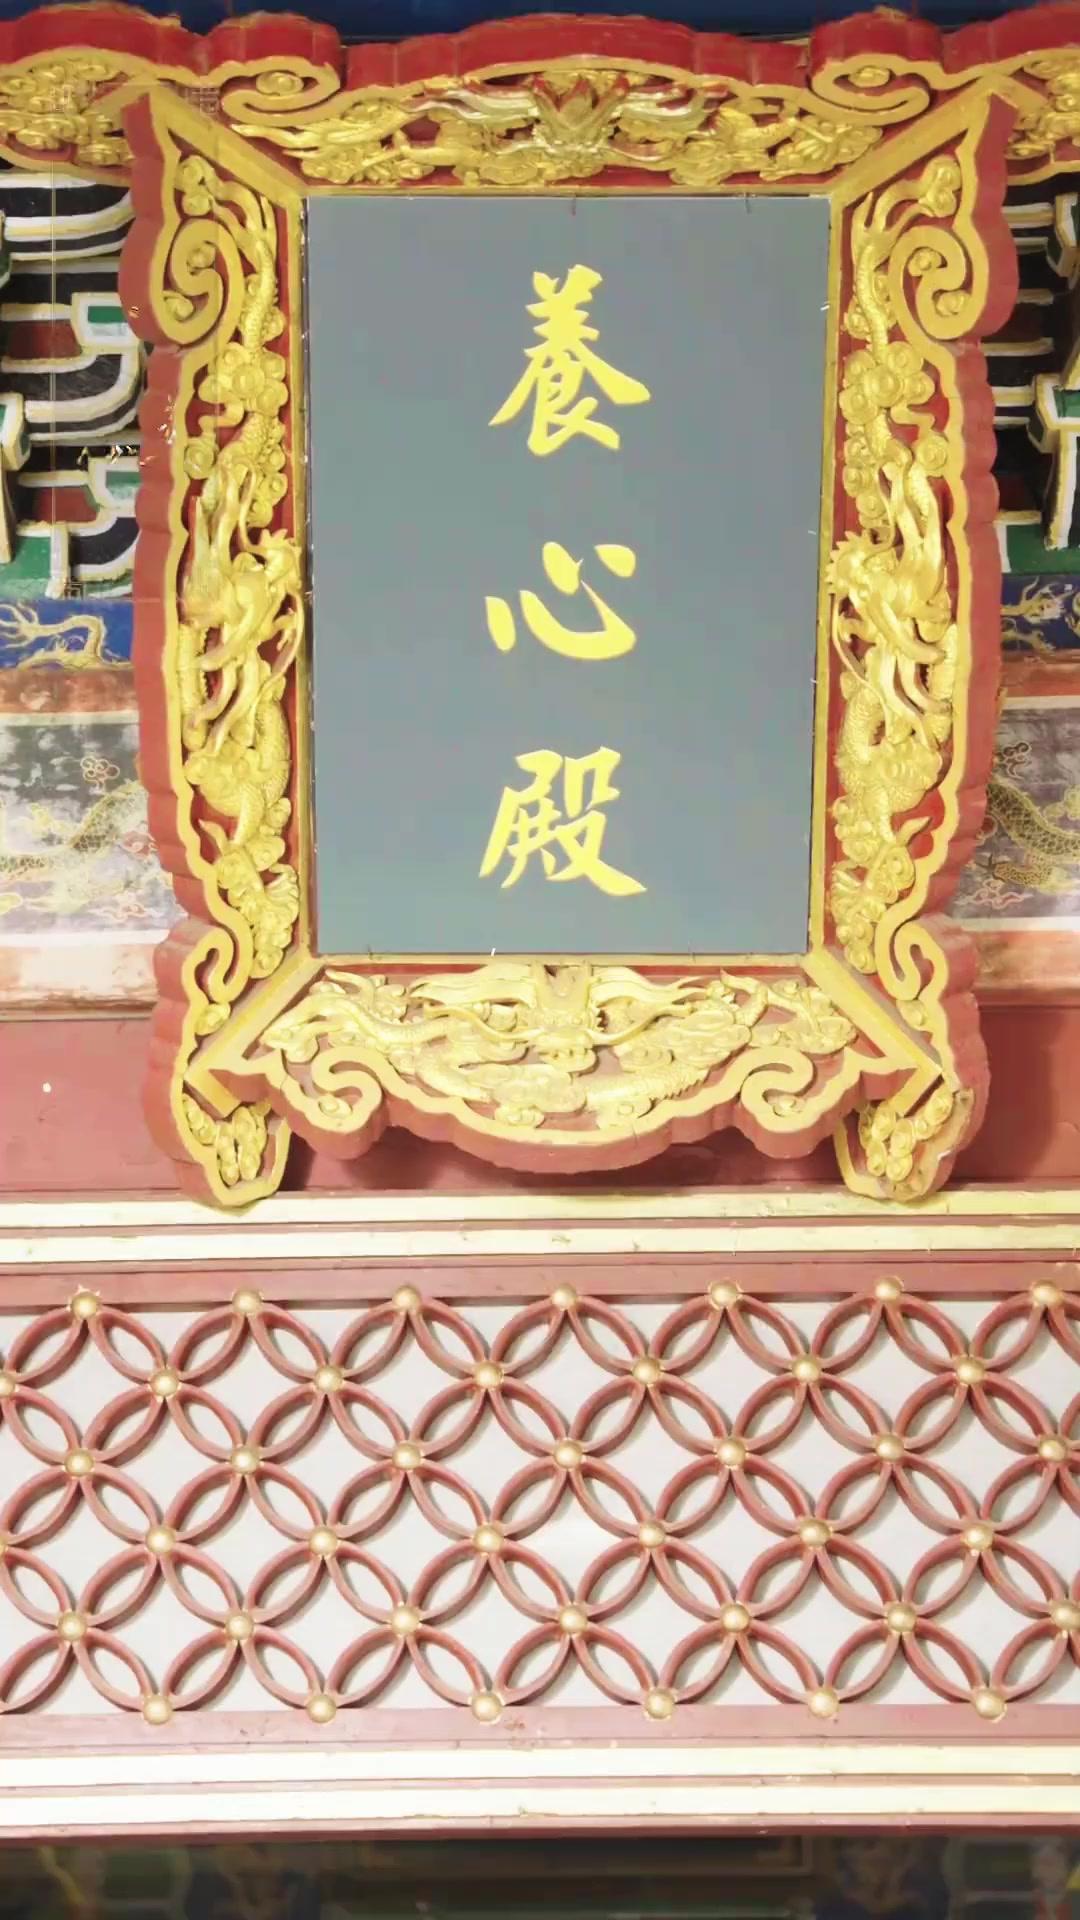 養心殿